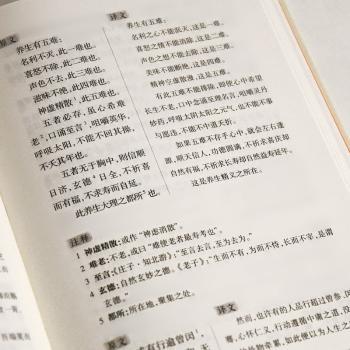 原文
养生有五难：
名利不灭，此一难也。
喜怒不除，此二难也。
声色不去，此三难也。
滋味不绝，此四难也。
神虚精散¹，此五难也。
五者必存，虽心希难
老²，口诵至言³，咀嚼英华，
呼吸太阳，不能不回其操，
不夭其年也。
五者无于胸中，则信顺
日济，玄德⁴日全，不祈喜
而有福，不求寿而自延。
此养生大理之都所⁵也。
译文
养生有五难：
名利之心不能泯灭，这是一难。
喜怒之情不能消除，这是二难。
声色之想不能去除，这是三难。
美味不能断绝，这是四难。
精神空虚散漫，这是五难。
有此五难不能排除，即使心中希望
长生不老，口中念诵至理名言，咀嚼灵丹
妙药，呼吸太阴太阳之元气，也不能不事
与愿违，不能不中道夭折。
如果五难不存于心中，就会左右逢
源，顺天信人，功德圆满，不祈求喜庆却
自然有福，不祈求长寿却自然益寿延年。
这是养生精义之所在。
注释
1 神虚精散：或作“神虚消散”。
2 难老：不老，或曰“难使老者最寿考也”。
3 至言：《庄子·知北游》：“至言去言，至为去为。”
4 玄德：自然玄妙之德。《老子》：“生而不有，为而不恃，长而不宰，是谓
玄德。”
5 都所：所在地，聚集之处。
译文
然而，也许有的人品行超过曾参、闵
心怀仁义，行动遵循中庸之道，没